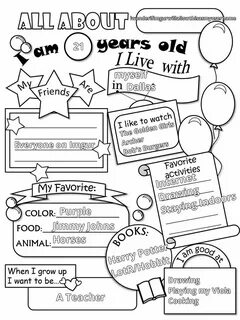 ALL ABOUT
I am 21 years old
I Live with
myself
in Dallas
My Friends Are
Everyone on Imgur
I like to watch
The Golden Girls
Archer
Bob's Burgers
Favorite
activities
Internet
Drawing
Staying Indoors
My Favorite:
COLOR: Purple
FOOD: Jimmy Johns
ANIMAL: Horses
BOOKS:
Harry Potter
LotR/Hobbit
When I grow up
I want to be...
A Teacher
I am good at
Drawing
Playing my Viola
Cooking